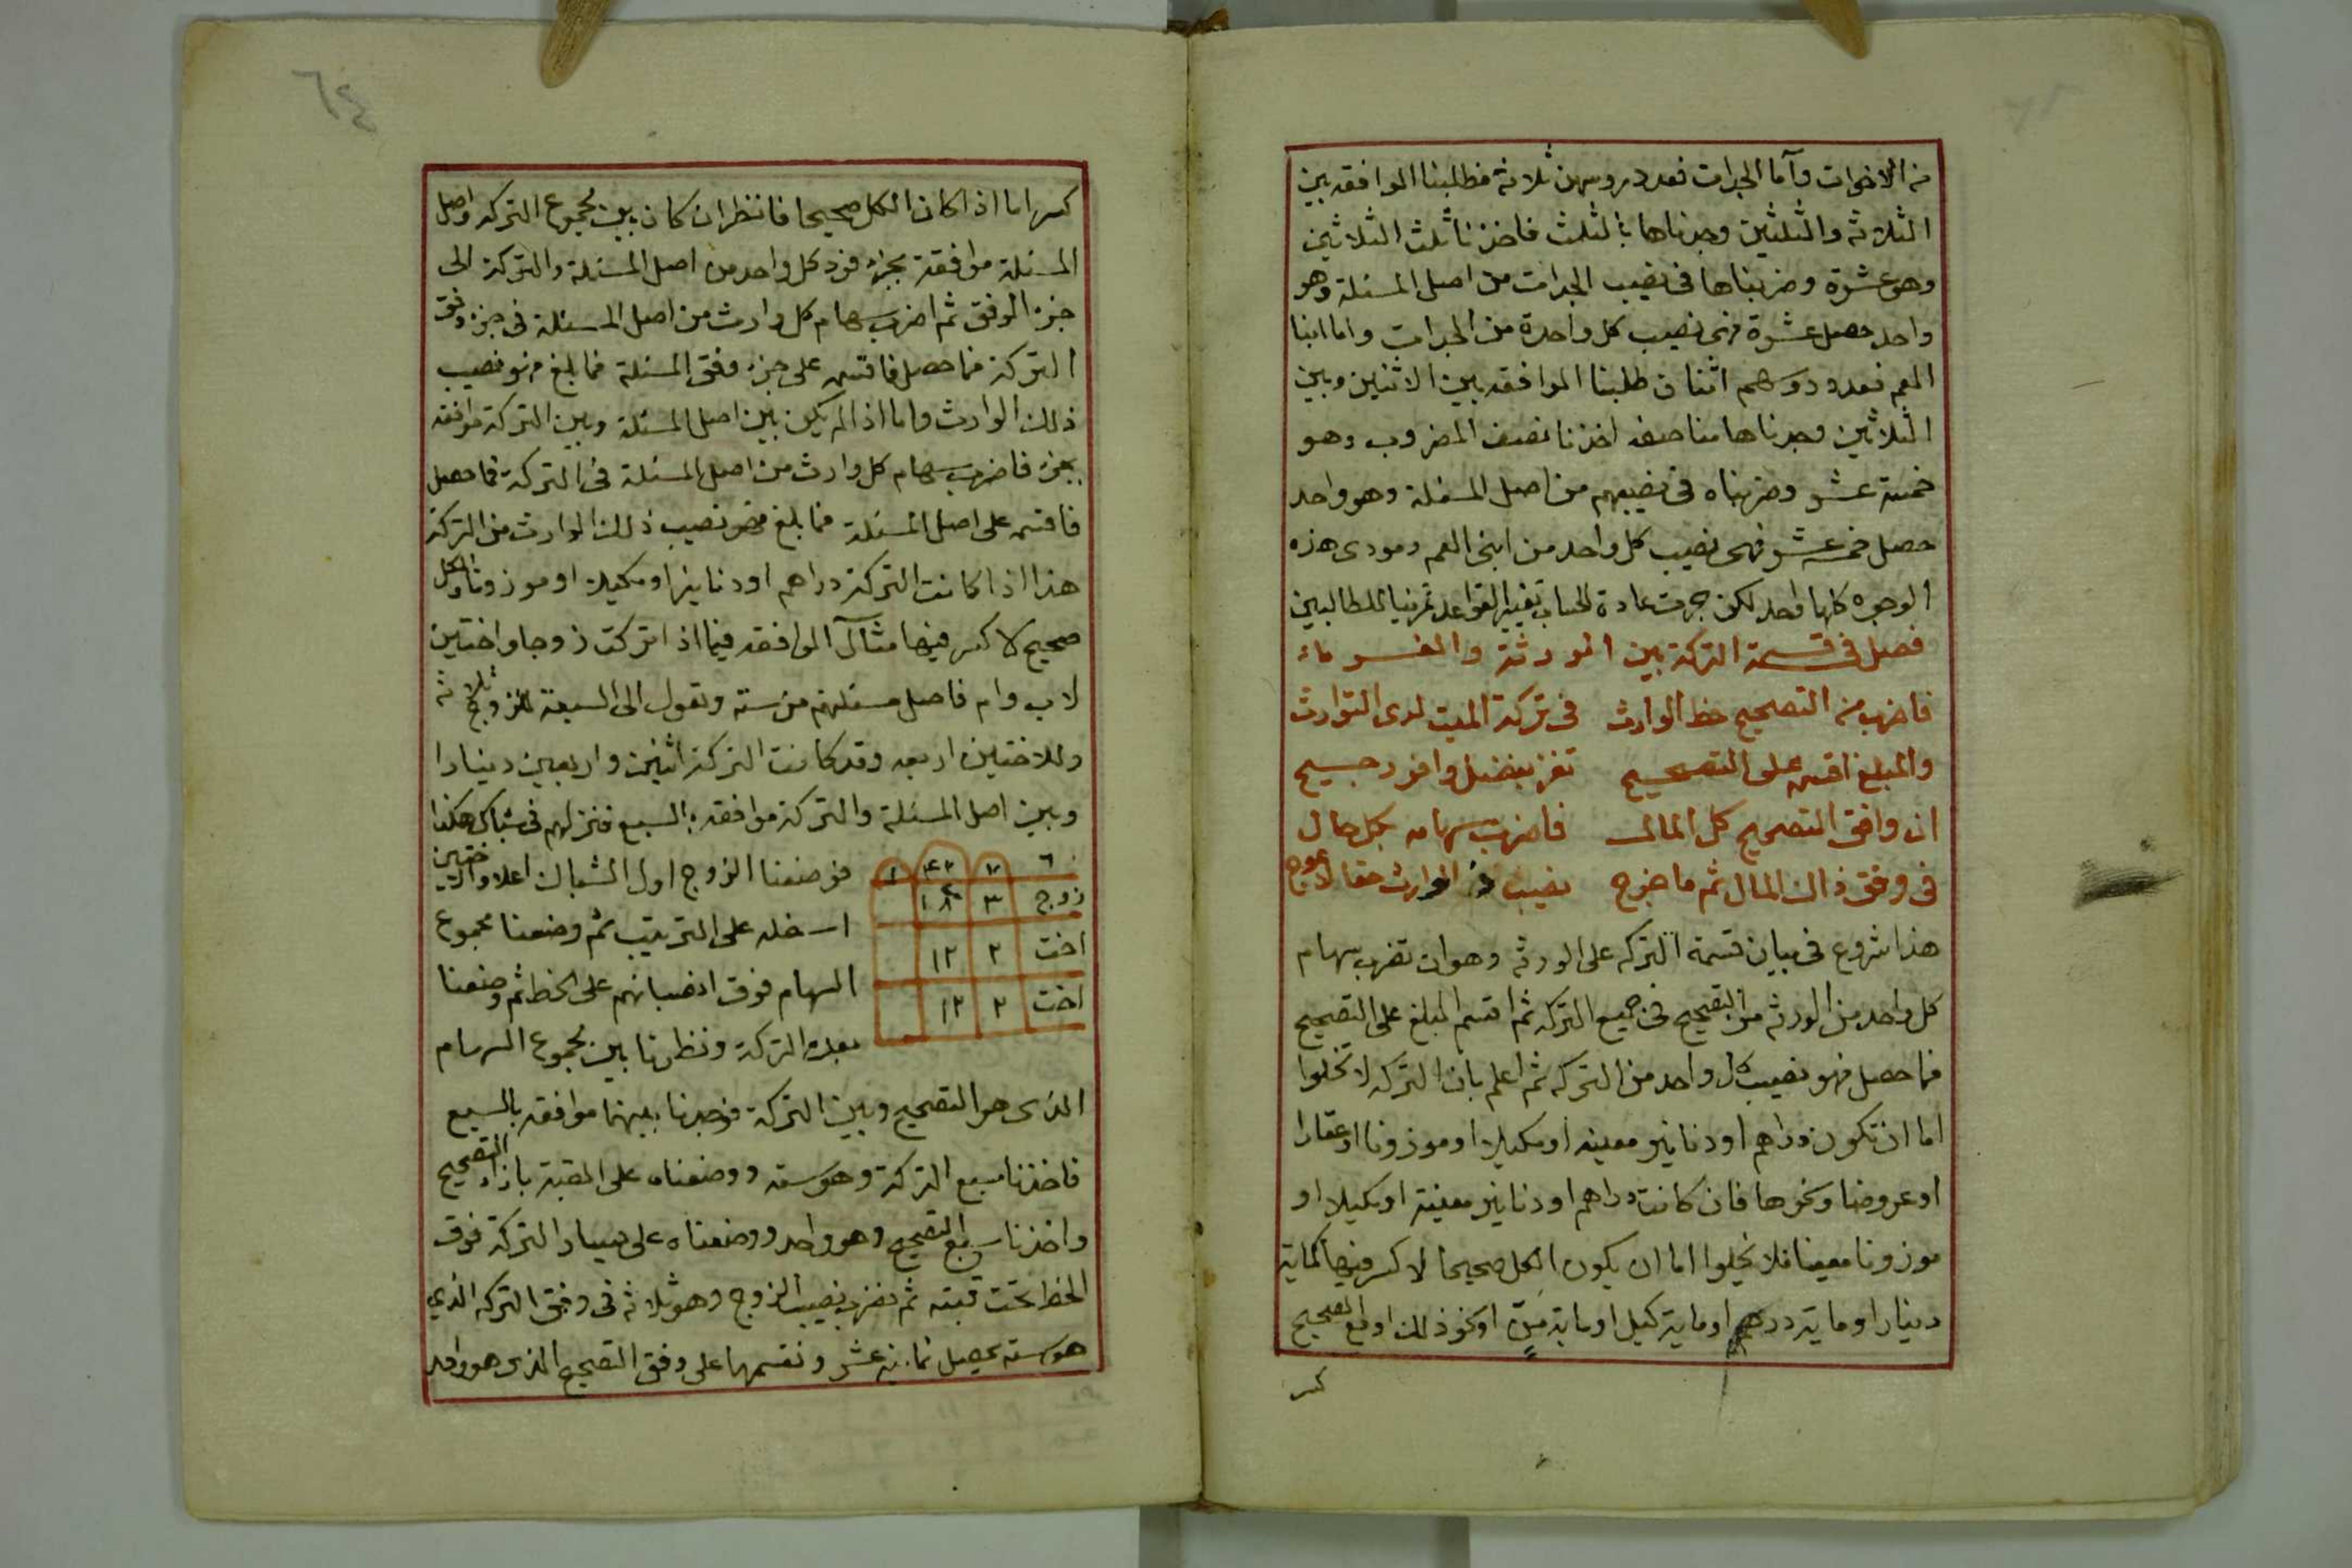 من الاخوات وأما الجدات فعدد روسهن ثلاثة فطلبنا الموافقه بين
الثلاثه والثلثين وجدناها بالثلث فاخذنا ثلث الثلاثين
وهو عشرة وضربناها فى نصيب الجدات من اصل المسئلة وهو
واحد حصل عشرة فهى نصيب كل واحدة من الجدات واما ابنا
العم فعدد روسهم اثنان طلبنا الموافقه بين الاثنين وبين
الثلاثين وجدناها مناصفه اخذنا نصف المضروب وهو
خمسة عشر وضربناه فى نصيبهم من اصل المسئلة وهو واحد
حصل خمسه عشر فهى نصيب كل واحد من ابنى العم ومودى هذه
الوجوه كلها واحد لكن جرت عادة الحساب تغيير القواعد تمرينا للطالبين
فصل فى قسمة التركة بين الورثة والغرماء
فاضرب من التصحيح حظ الوارث فى تركة الميت لدى التوارث
والمبلغ اقسم على التصحيح تفز بفضل وافر رجيح
ان وافق التصحيح كل المال فاضرب سهامه بكل حال
فى وفق ذاك المال ثم ما خرج نصيب ذا الوارث حقا لا عوج
هذا شروع فى بيان قسمة التركه على الورثه وهو ان تضرب سهام
كل واحد من الورثه من التصحيح فى جميع التركه ثم اقسم المبلغ على التصحيح
فما حصل فهو نصيب كل واحد من التركه ثم اعلم بان التركه لا تخلوا
اما ان تكون دراهم او دنانير معينه او مكيلا او موزونا او عقارا
او عروضا ونحوها فان كانت دراهم او دنانير معينة او مكيلا او
موزونا معينا فلا يخلوا اما ان يكون الكل صحيحا لا كسر فيها كماية
دينار او ماية درهم او ماية كيل او ماية منّ او نحو ذلك او مع الصحيح
كسر
٦٤
كسر اما اذا كان الكل صحيحا فانظر ان كان بين مجموع التركه واصل
المسئلة موافقة بجزء فرد كل واحد من اصل المسئلة والتركة الى
جزء الوفق ثم اضرب سهام كل وارث من اصل المسئلة فى جزء وفق
التركة فما حصل فاقسم على جزء وفق المسئلة فما بلغ فهو نصيب
ذلك الوارث واما اذا لم يكن بين اصل المسئلة وبين التركة موافقه
بجزء فاضرب سهام كل وارث من اصل المسئلة فى التركة فما حصل
فاقسم على اصل المسئلة فما بلغ فهو نصيب ذلك الوارث من التركة
هذا اذا كانت التركة دراهم او دنانيرا او مكيلا او موزونا والكل
صحيح لا كسر فيها مثال الموافقه فيما اذا تركت زوجا واختين
لاب وام فاصل مسئلتهم من ستة وتعول الى السبعة للزوج ثلاثه
وللاختين اربعه وقد كانت التركة اثنين واربعين دينارا
وبين اصل المسئلة والتركة موافقه بالسبع فنزلهم فى شباك هكذا
٦ ٧ ٤٢ ١
زوج ٣ ١٨
اخت ٢ ١٢
اخت ٢ ١٢
فوضعنا الزوج اول الشباك اعلا والاختين
اسفله على الترتيب ثم وضعنا مجموع
السهام فوق انصبائهم على الخط ثم وضعنا
بعده التركة ونظرنا بين مجموع السهام
الذى هو التصحيح وبين التركة فوجدنا بينهما موافقه بالسبع
فاخذنا سبع التركة وهو سته ووضعناه على القبة بازاء التصحيح
واخذنا سبع التصحيح وهو واحد ووضعناه على يسار التركة فوق
الخط تحت قبته ثم نضرب نصيب الزوج وهو ثلاثه فى وفق التركه الذي
هو سته يحصل ثمانيه عشر ونقسمها على وفق التصحيح الذى هو واحد